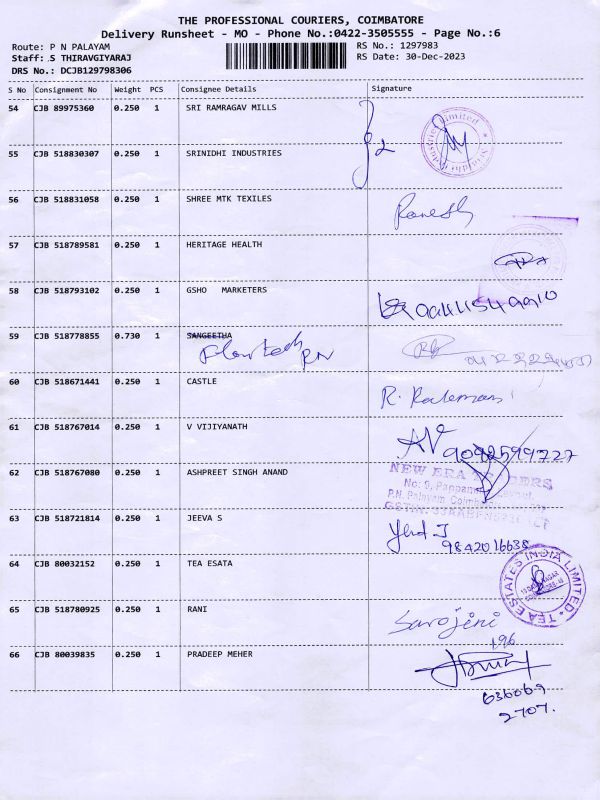 THE PROFESSIONAL COURIERS, COIMBATORE
Delivery Runsheet - MO - Phone No.:0422-3505555 - Page No.:6
Route: P N PALAYAM RS No.: 1297983
Staff: S THIRAVGIYARAJ RS Date: 30-Dec-2023
DRS No.: DCJB129798306
S No Consignment No Weight PCS Consignee Details Signature
54 CJB 89975360 0.250 1 SRI RAMRAGAV MILLS
55 CJB 518830307 0.250 1 SRINIDHI INDUSTRIES
56 CJB 518831058 0.250 1 SHREE MTK TEXILES
57 CJB 518789581 0.250 1 HERITAGE HEALTH
58 CJB 518793102 0.250 1 GSHO MARKETERS
59 CJB 518778855 0.730 1 SANGEETHA
60 CJB 518671441 0.250 1 CASTLE
61 CJB 518767014 0.250 1 V VIJIYANATH
9092599727
62 CJB 518767080 0.250 1 ASHPREET SINGH ANAND
NEW ERA
P.N. Palayam
63 CJB 518721814 0.250 1 JEEVA S
9842016638
64 CJB 80032152 0.250 1 TEA ESATA
TEA ESTATES INDIA LIMITED
65 CJB 518780925 0.250 1 RANI
Sarojini
196
66 CJB 80039835 0.250 1 PRADEEP MEHER
636069
2707.